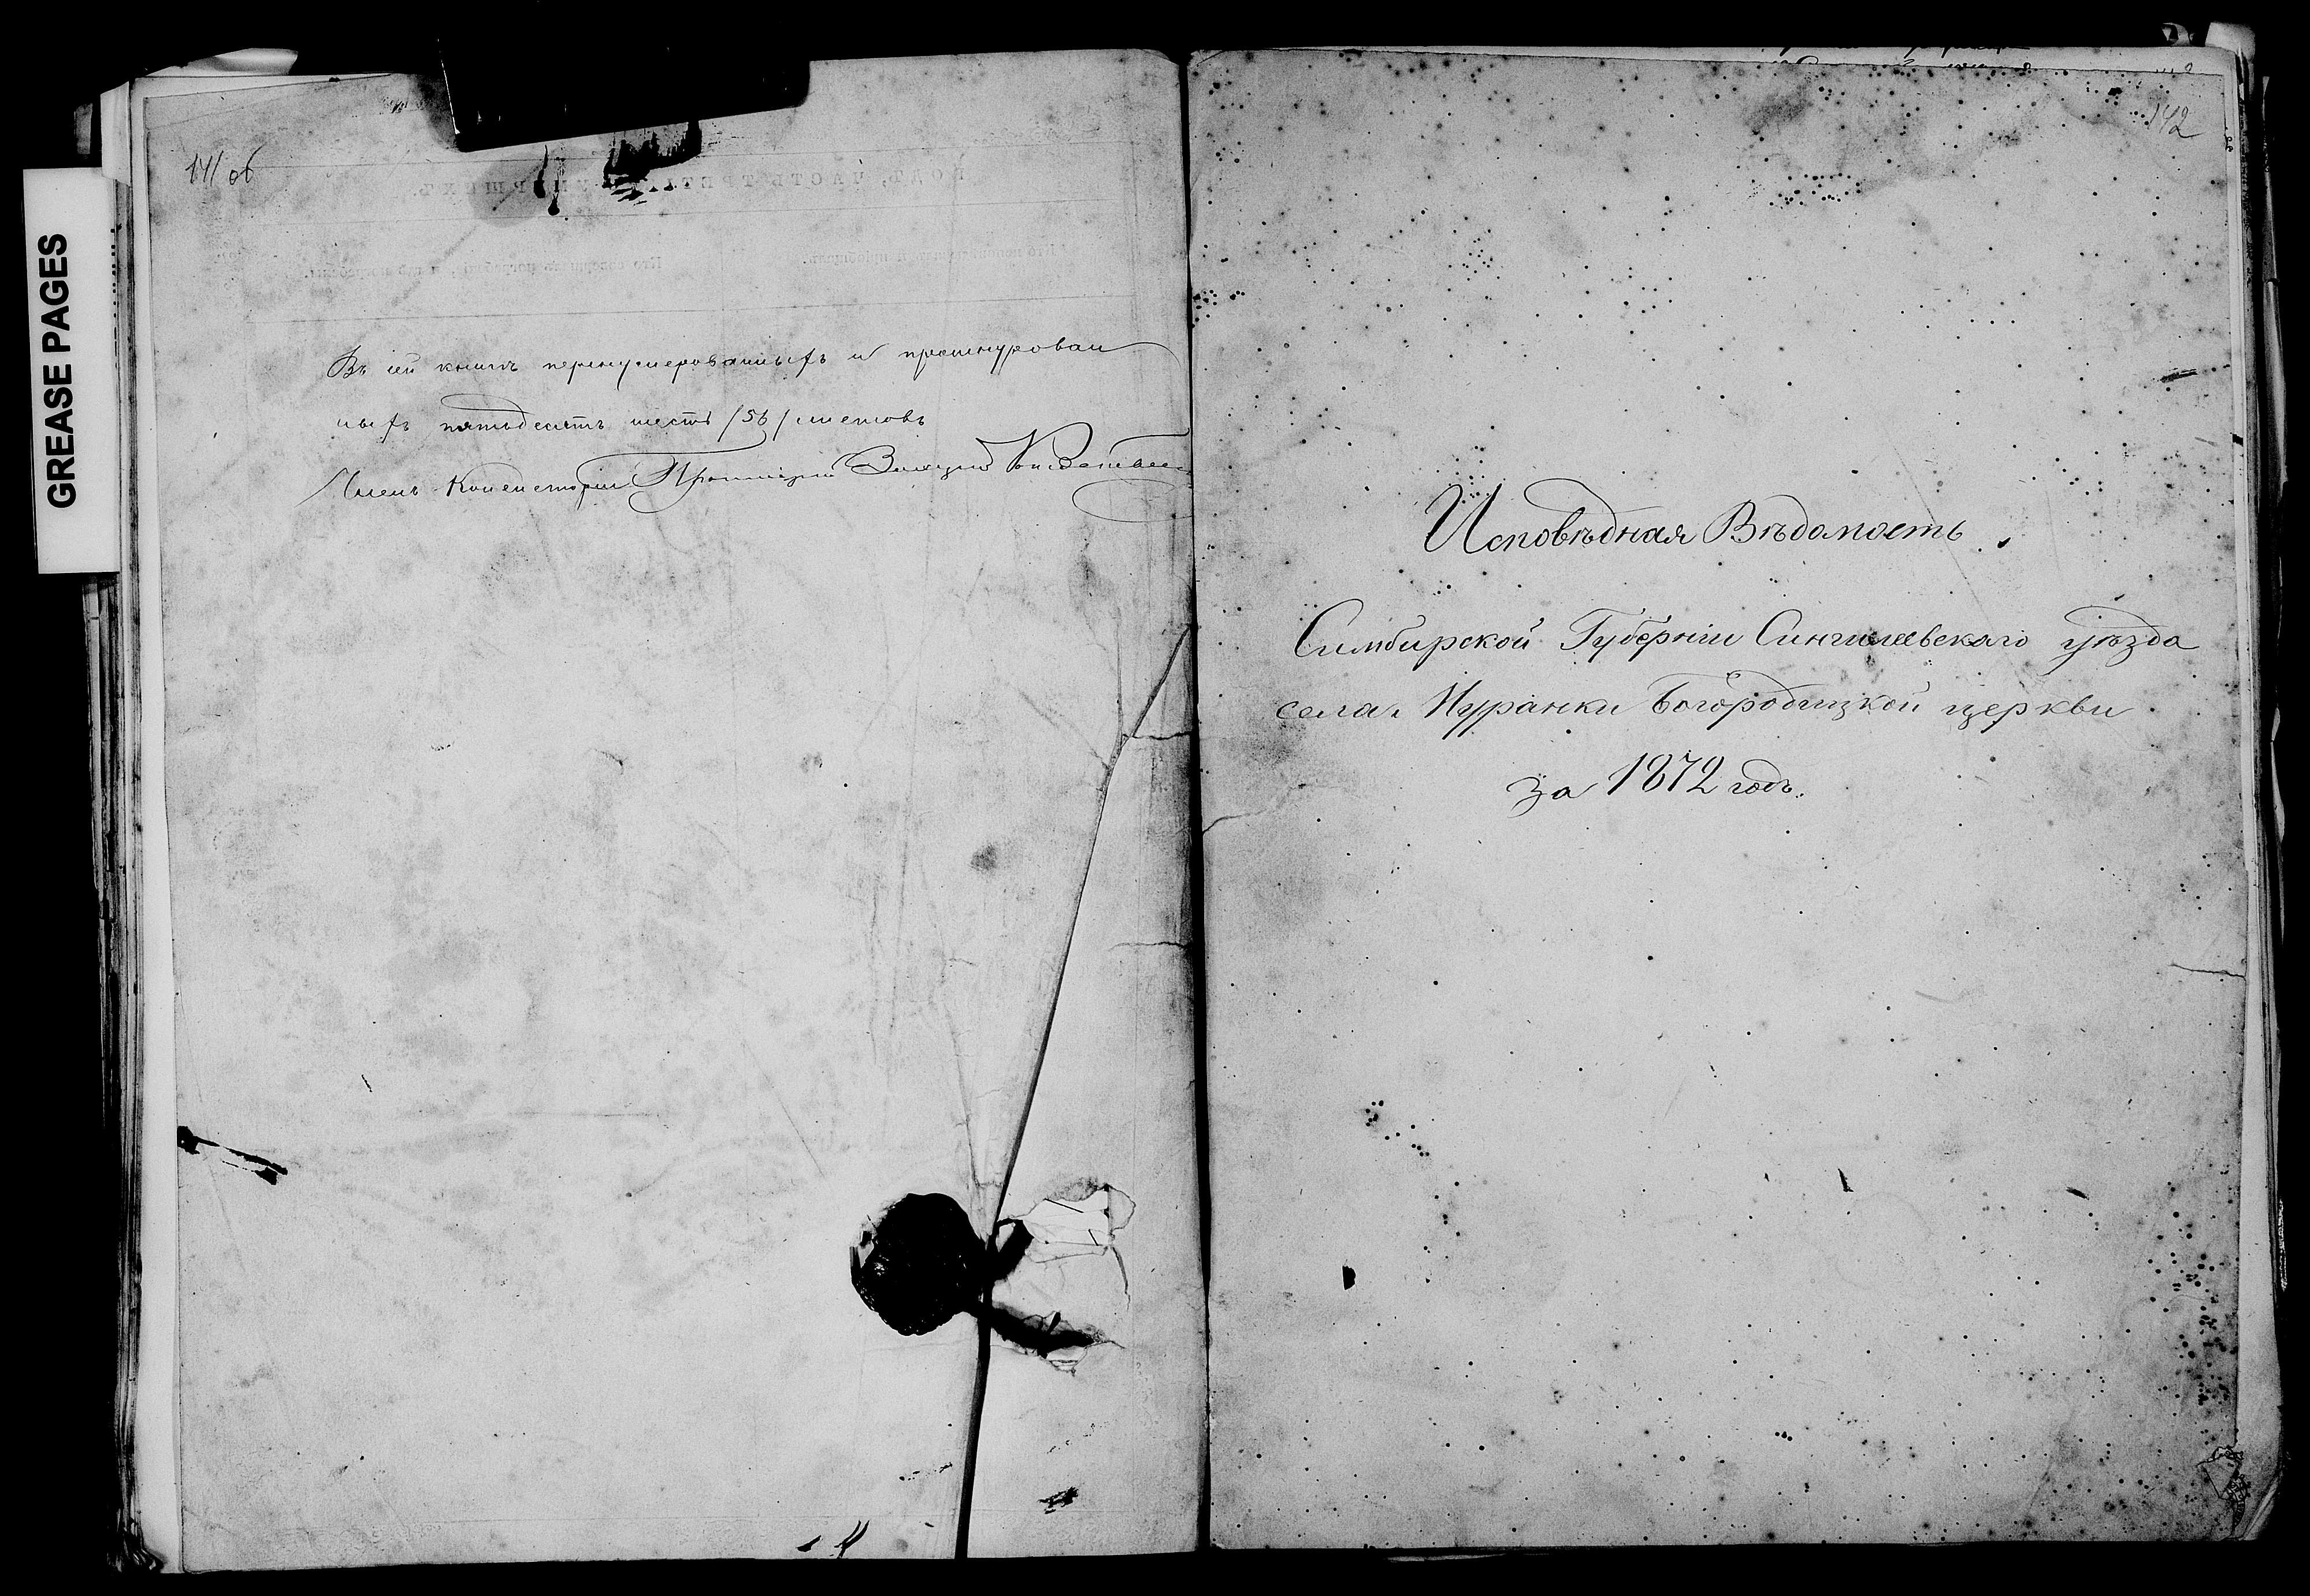 GREASE PAGES
141 об
Въ сей книгѣ перенумерованныхъ и прошнурован
ныхъ пятьдесятъ шесть /56/ листовъ
Членъ Консисторіи Протоіерей
142
Исповѣдная Вѣдомость
Симбирской Губерніи Сингилеевскаго уѣзда
села Муранки Богородицкой церкви
за 1872 годъ.